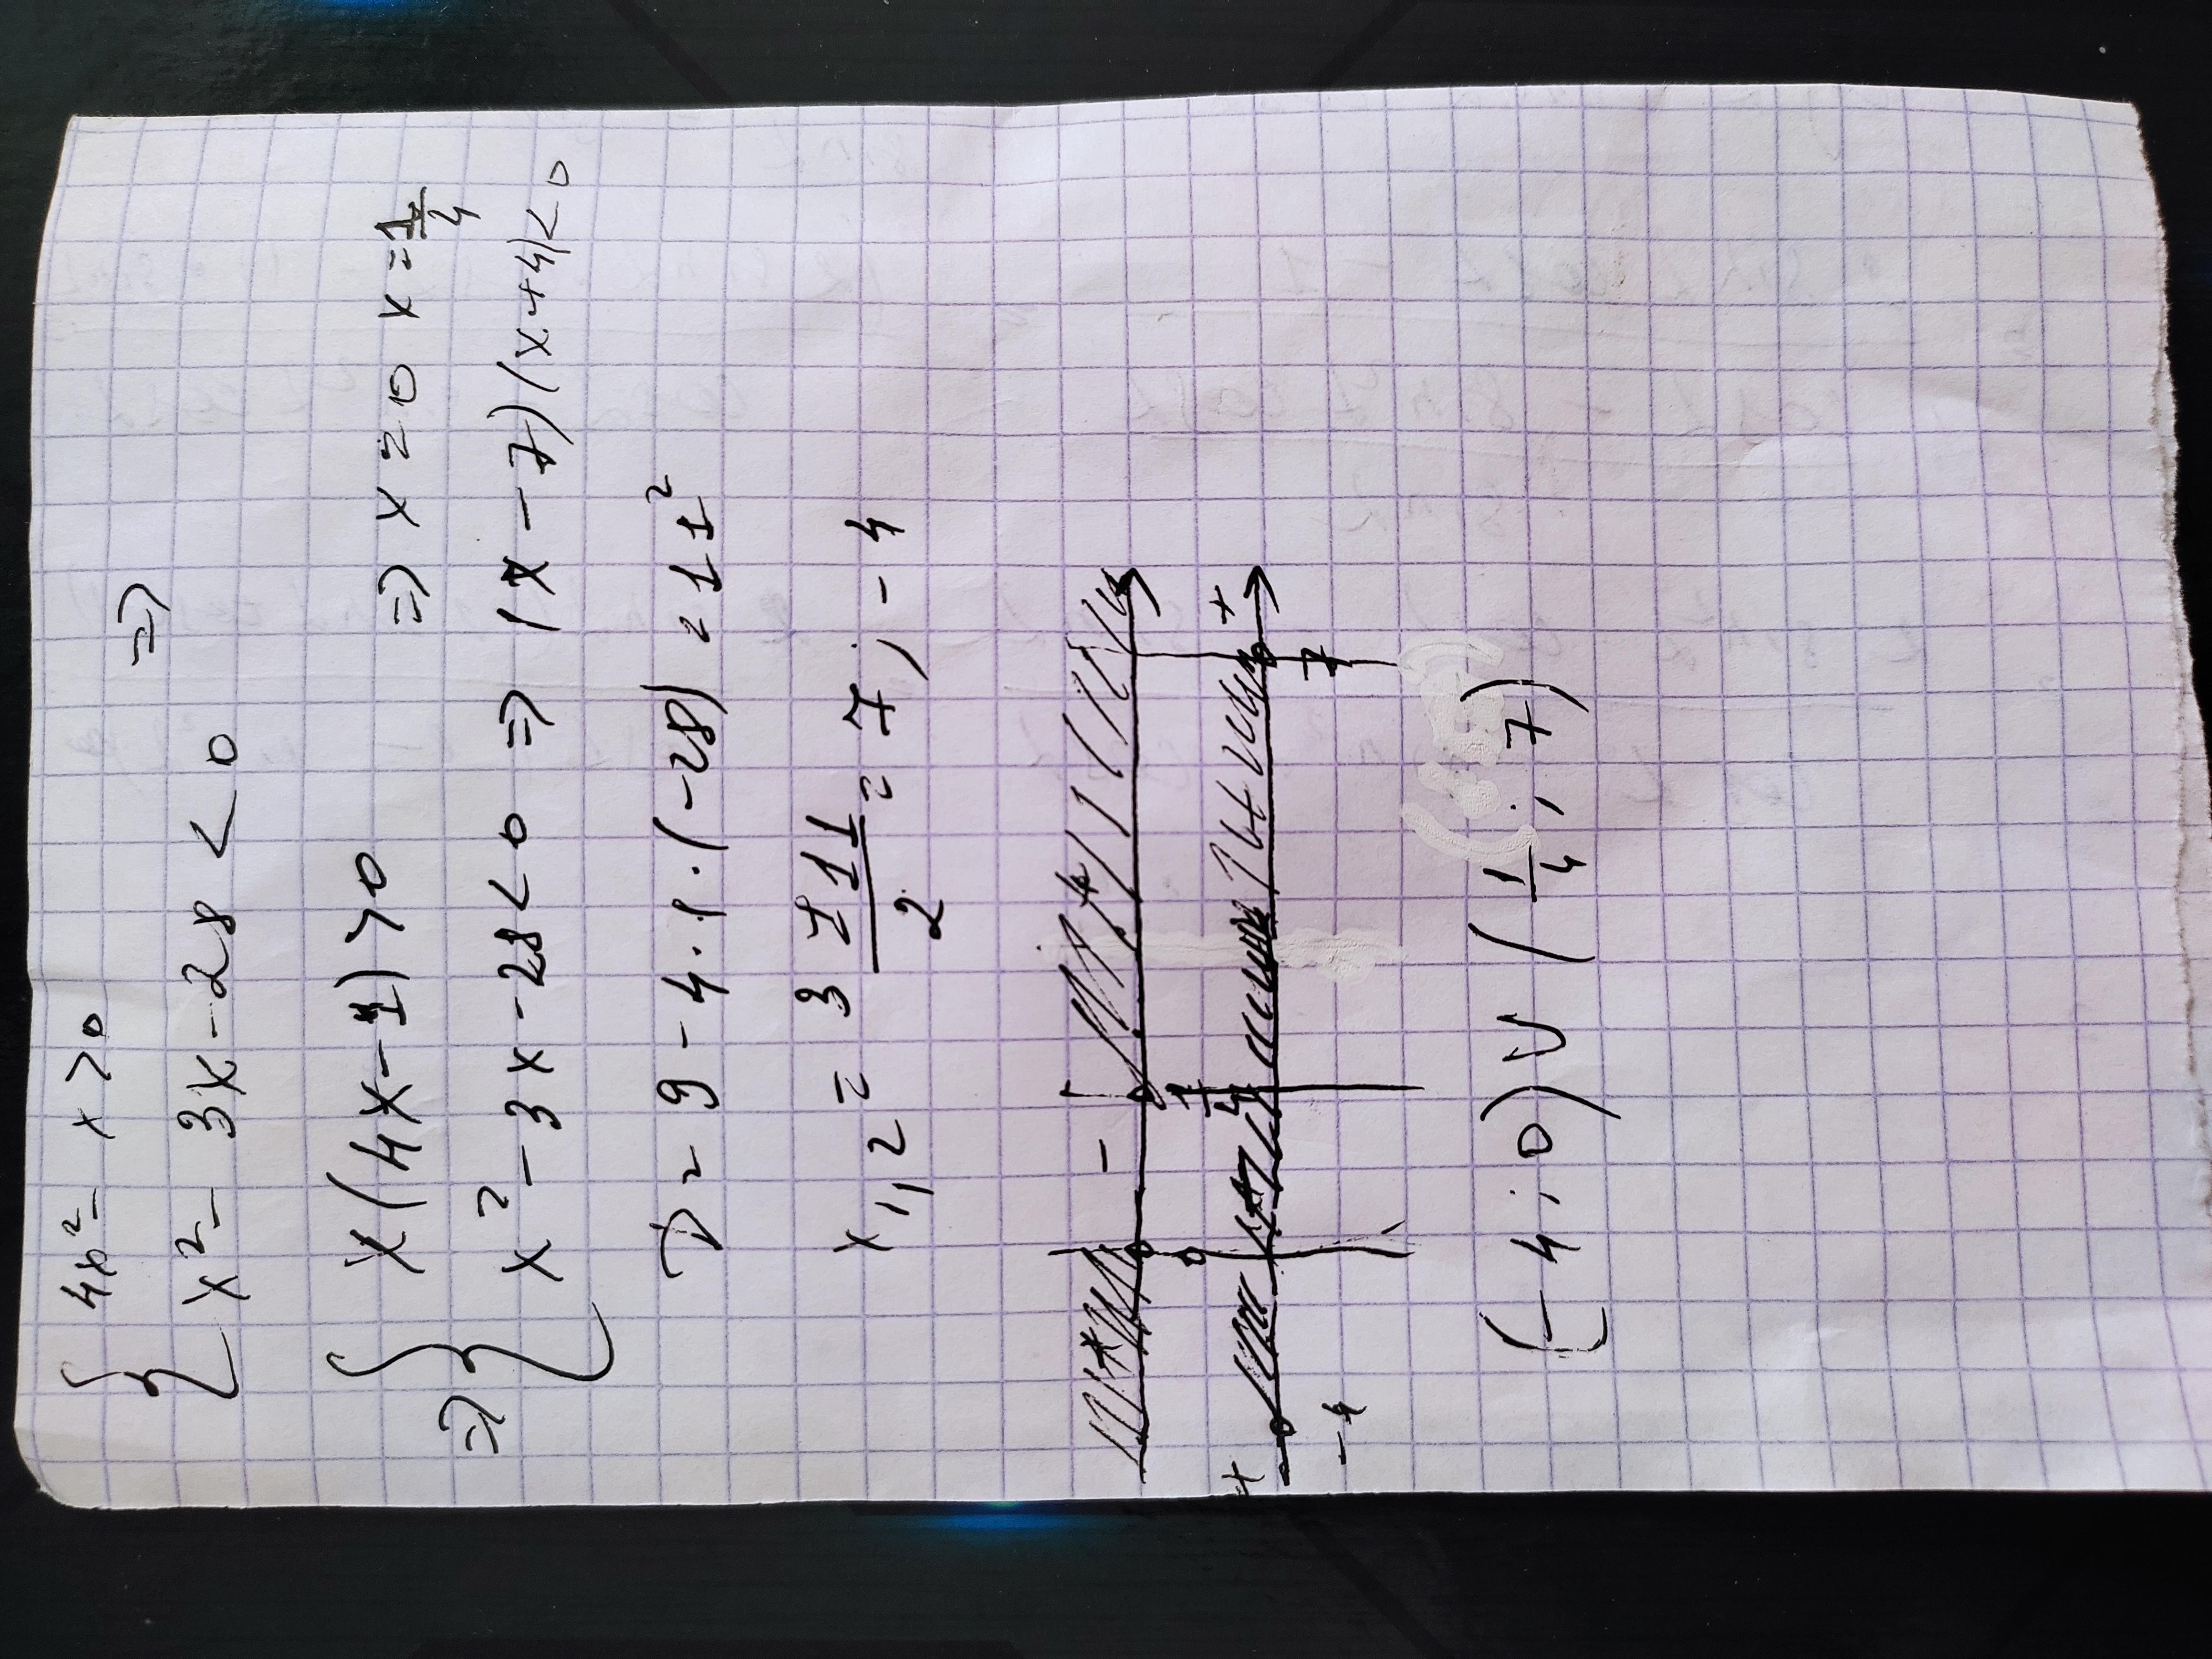 4x² - x > 0
⇒
x² - 3x - 28 < 0
x(4x - 1) > 0 ⇒ x = 0 x = 1/4
⇒
x² - 3x - 28 < 0 ⇒ (x - 7)(x + 4) < 0
D = 9 - 4 · 1 · (-28) = 11²
x1,2 = (3 ± 11)/2 = 7; -4
+ - +
0 1/4
+ - +
-4 7
(-4; 0) ∪ (1/4; 7)